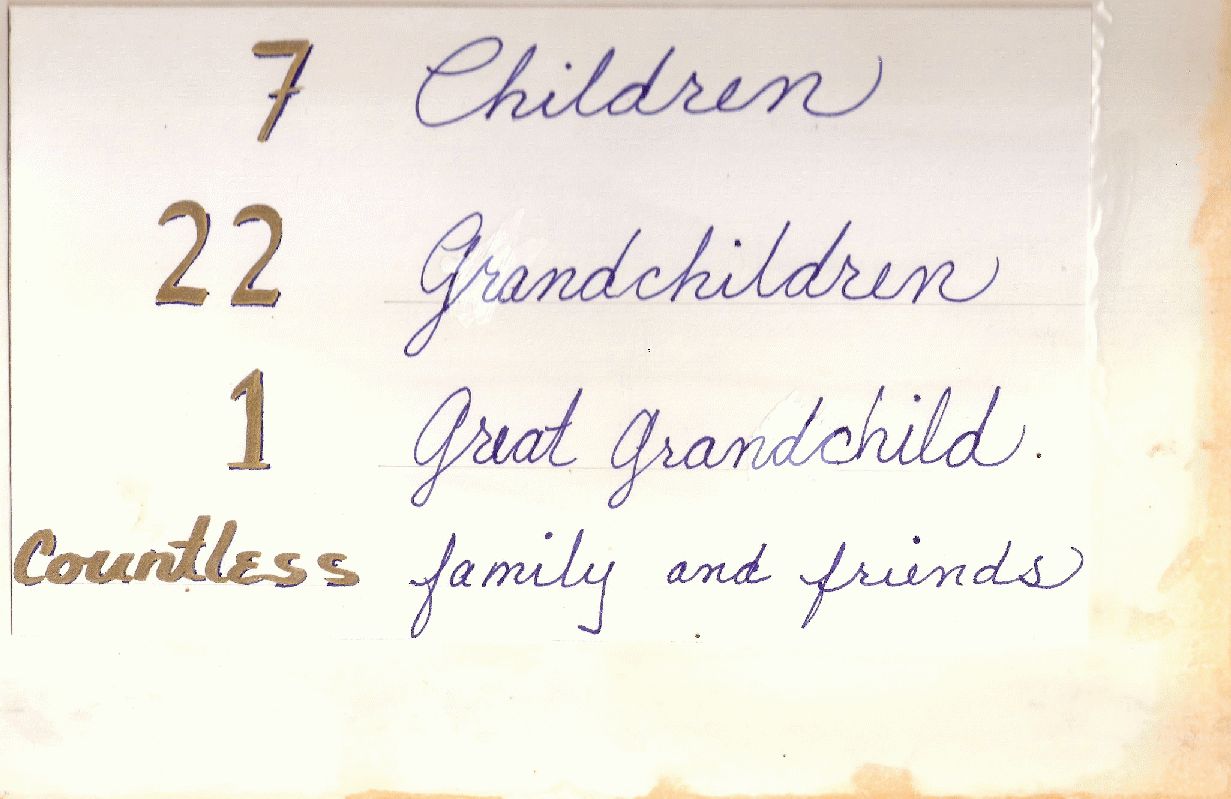 7 Children
22 Grandchildren
1 Great Grandchild.
Countless family and friends